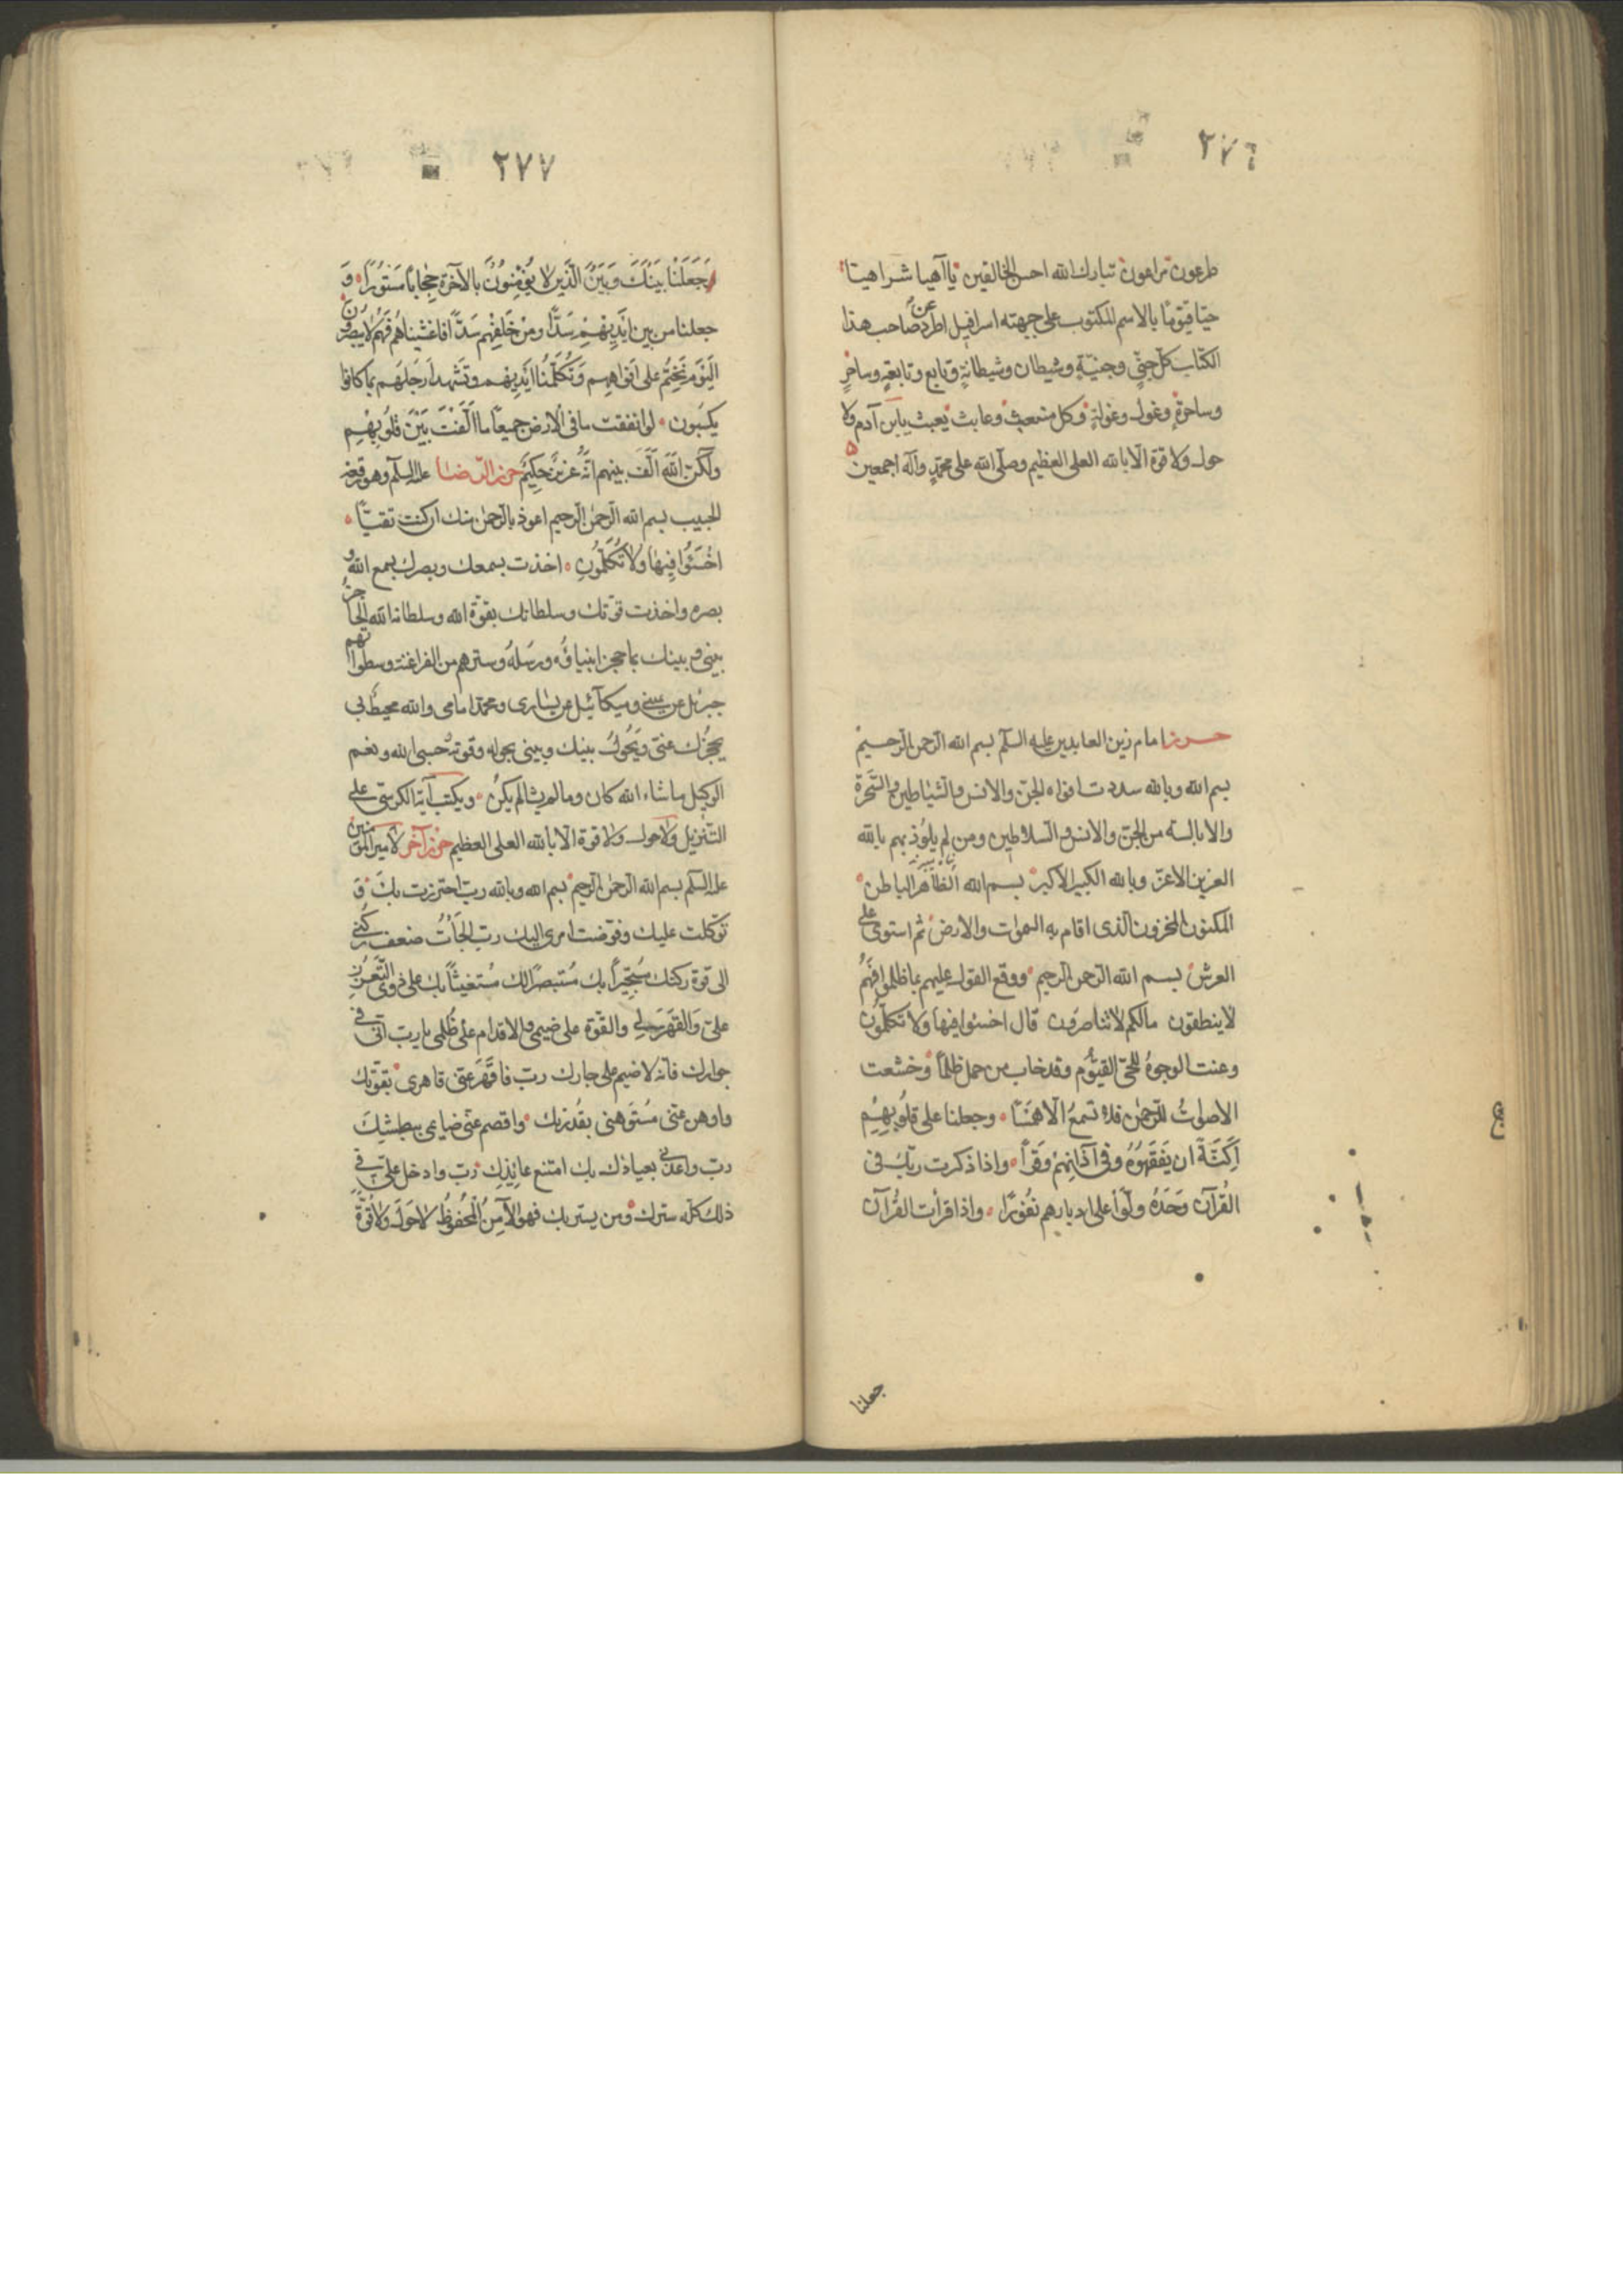 ٢٧٦
طرعون براهون تبارك الله احسن الخالقين يا آهيا شراهيا
حيا قيوما بالاسم المكتوب على جبهته اسرافيل اطرد عن صاحب هذا
الكتاب كل جنى وجنية وشيطان وشيطانة وتابع وتابعة وساحر
وساحرة وغول وغولة وكل متعبث وعابث يعبث بابن آدم ولا
حول ولا قوة الا بالله العلى العظيم وصلى الله على محمد وآله اجمعين
حرز امام زين العابدين عليه السلم بسم الله الرحمن الرحيم
بسم الله وبالله سددت افواه الجن والانس والشياطين والسحرة
والابالسة من الجن والانس والسلاطين ومن لم يلوذ بهم بالله
العزيز الاعز وبالله الكبير الاكبر بسم الله الظاهر الباطن
المكنون المخزون الذى اقام به السموات والارض ثم استوى على
العرش بسم الله الرحمن الرحيم ووقع القول عليهم بما ظلموا فهم
لا ينطقون مالكم لا تناصرون قال اخسئوا فيها ولا تكلمون
وعنت الوجوه للحى القيوم وقد خاب من حمل ظلما وخشعت
الاصوات للرحمن فلا تسمع الا همسا وجعلنا على قلوبهم
اكنة ان يفقهوه وفى آذانهم وقرا واذا ذكرت ربك فى
القرآن وحده ولوا على ادبارهم نفورا واذا قرأت القرآن
جعلنا
٢٧٧
جعلنا بينك وبين الذين لا يؤمنون بالآخرة حجابا مستورا و
جعلنا من بين ايديهم سدا ومن خلفهم سدا فاغشيناهم فهم لا يبصرون
اليوم نختم على افواههم وتكلمنا ايديهم وتشهد ارجلهم بما كانوا
يكسبون لو انفقت ما فى الارض جميعا ما الفت بين قلوبهم
ولكن الله الف بينهم انه عزيز حكيم حرز الرضا عليه السلم وهو رقعة
الجيب بسم الله الرحمن الرحيم اعوذ بالرحمن منك ان كنت تقيا
اخسئوا فيها ولا تكلمون اخذت بسمعك وبصرك بسمع الله و
بصره واخذت قوتك وسلطانك بقوة الله وسلطان الله الحاجز
بينى وبينك بما حجز انبياؤه ورسله وسترهم من الفراعنة وسطواتهم
جبرئيل عن يمينى وميكائيل عن يسارى ومحمد امامى والله محيط بى
يحجزك عنى ويحول بينك وبينى بحوله وقوته حسبى الله ونعم
الوكيل ما شاء الله كان وما لم يشأ لم يكن ويكتب آية الكرسى على
التنزيل ولا حول ولا قوة الا بالله العلى العظيم حرز آخر لامير المؤمنين
عليه السلم بسم الله الرحمن الرحيم بسم الله وبالله رب احترزت بك و
توكلت عليك وفوضت امرى اليك رب الجأت ضعف ركنى
الى قوة ركنك مستجيرا بك مستنصرا لك مستغيثا بك على ذوى التعزز
على والقهر لى والقوة على ضيمى والاقدام على ظلمى يا رب انى فى
جوارك فانه لا ضيم على جارك رب فاقهر عنى قاهرى بقوتك
واوهن عنى مستوهنى بقدرتك واقصم عنى ضايمى ببطشك
رب واعذنى بعياذك بك امتنع عائذك رب وادخل على فى
ذلك كله سترك ومن يستر بك فهو الآمن المحفوظ لا حول ولا قوة